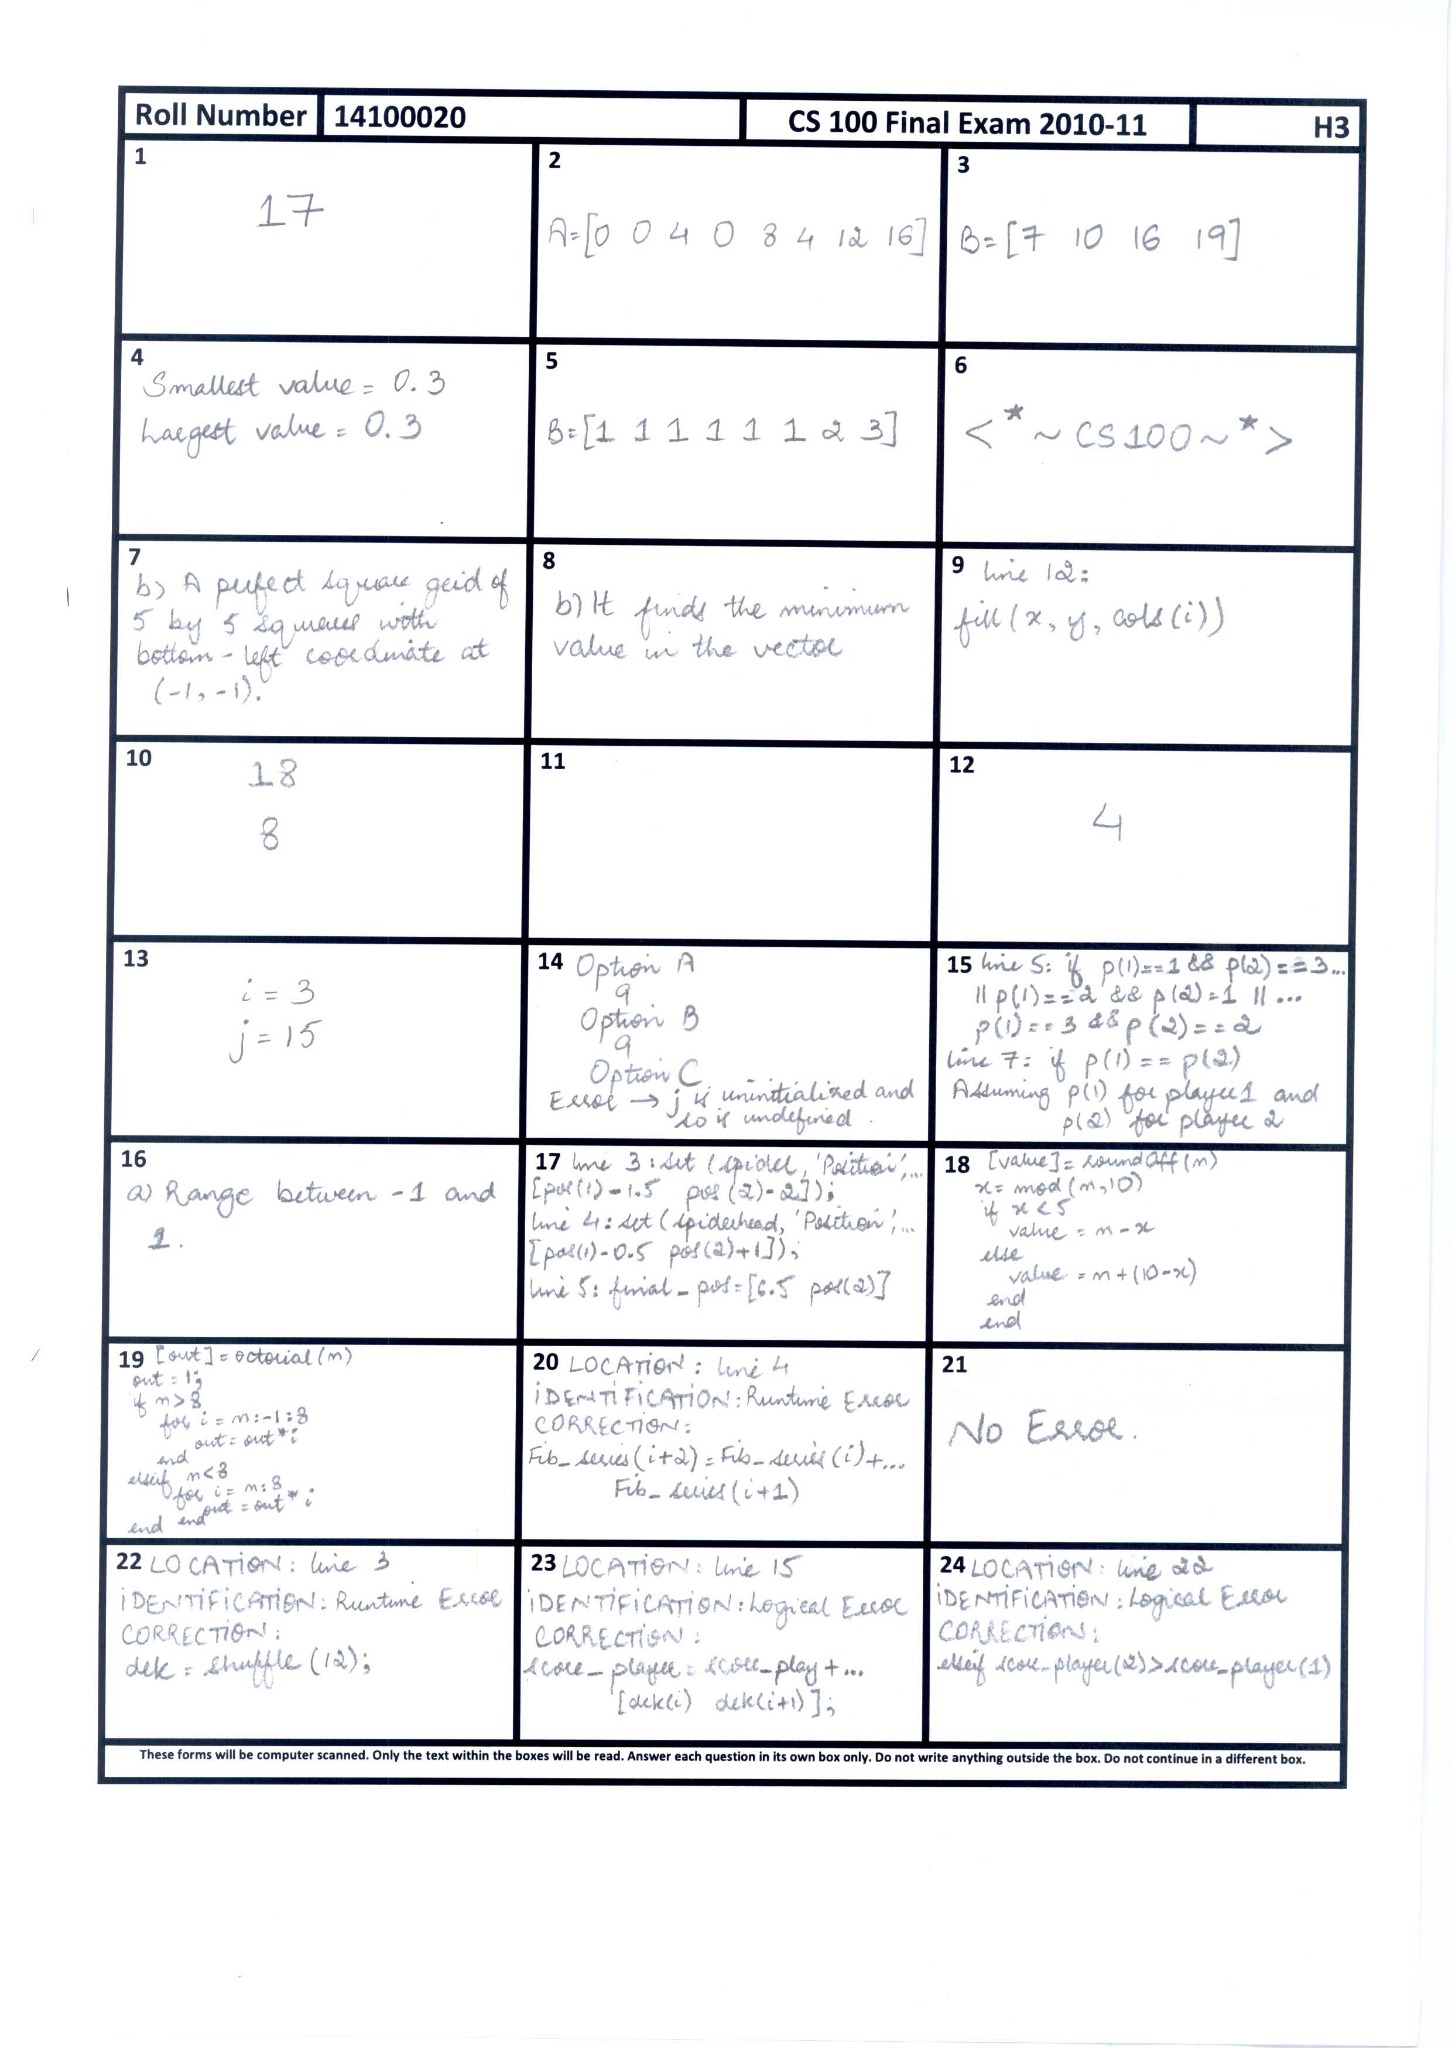 Roll Number 14100020 CS 100 Final Exam 2010-11 H3
1
17
2
A=[0 0 4 0 8 4 12 16]
3
B=[7 10 16 19]
4
Smallest value = 0.3
Largest value = 0.3
5
B=[1 1 1 1 1 1 2 3]
6
<*~CS100~*>
7
b) A perfect square grid of
5 by 5 squares with
bottom-left coordinate at
(-1, -1).
8
b) It finds the minimum
value in the vector
9 line 12:
fill(x, y, cols(i))
10
18
8
11
12
4
13
i = 3
j = 15
14 Option A
9
Option B
9
Option C
Error → j is uninitialized and
so is undefined.
15 line 5: if p(1)==1 && p(2)==3...
|| p(1)==2 && p(2)=1 || ...
p(1)==3 && p(2)==2
line 7: if p(1) == p(2)
Assuming p(1) for player 1 and
p(2) for player 2
16
a) Range between -1 and
1.
17 line 3: set (spider, 'Position',...
[pos(1)-1.5 pos(2)-2]);
line 4: set (spiderhead, 'Position',...
[pos(1)-0.5 pos(2)+1]);
line 5: final_pos=[6.5 pos(2)]
18 [value]= roundoff(n)
x= mod(n,10)
if x<5
value = n-x
else
value = n+(10-x)
end
end
19 [out]=octorial(n)
out=1;
if n>8
for i=n:-1:8
out=out*i
end
elseif n<8
for i= n:8
out=out*i
end end
20 LOCATION: line 4
IDENTIFICATION: Runtime Error
CORRECTION:
Fib_series(i+2)=Fib_series(i)+...
Fib_series(i+1)
21
No Error.
22 LOCATION: line 3
IDENTIFICATION: Runtime Error
CORRECTION:
dek = shuffle(12);
23 LOCATION: line 15
IDENTIFICATION: Logical Error
CORRECTION:
score_player = score_play+...
[dek(i) dek(i+1)];
24 LOCATION: line 22
IDENTIFICATION: Logical Error
CORRECTION:
elseif score_player(2)>score_player(1)
These forms will be computer scanned. Only the text within the boxes will be read. Answer each question in its own box only. Do not write anything outside the box. Do not continue in a different box.